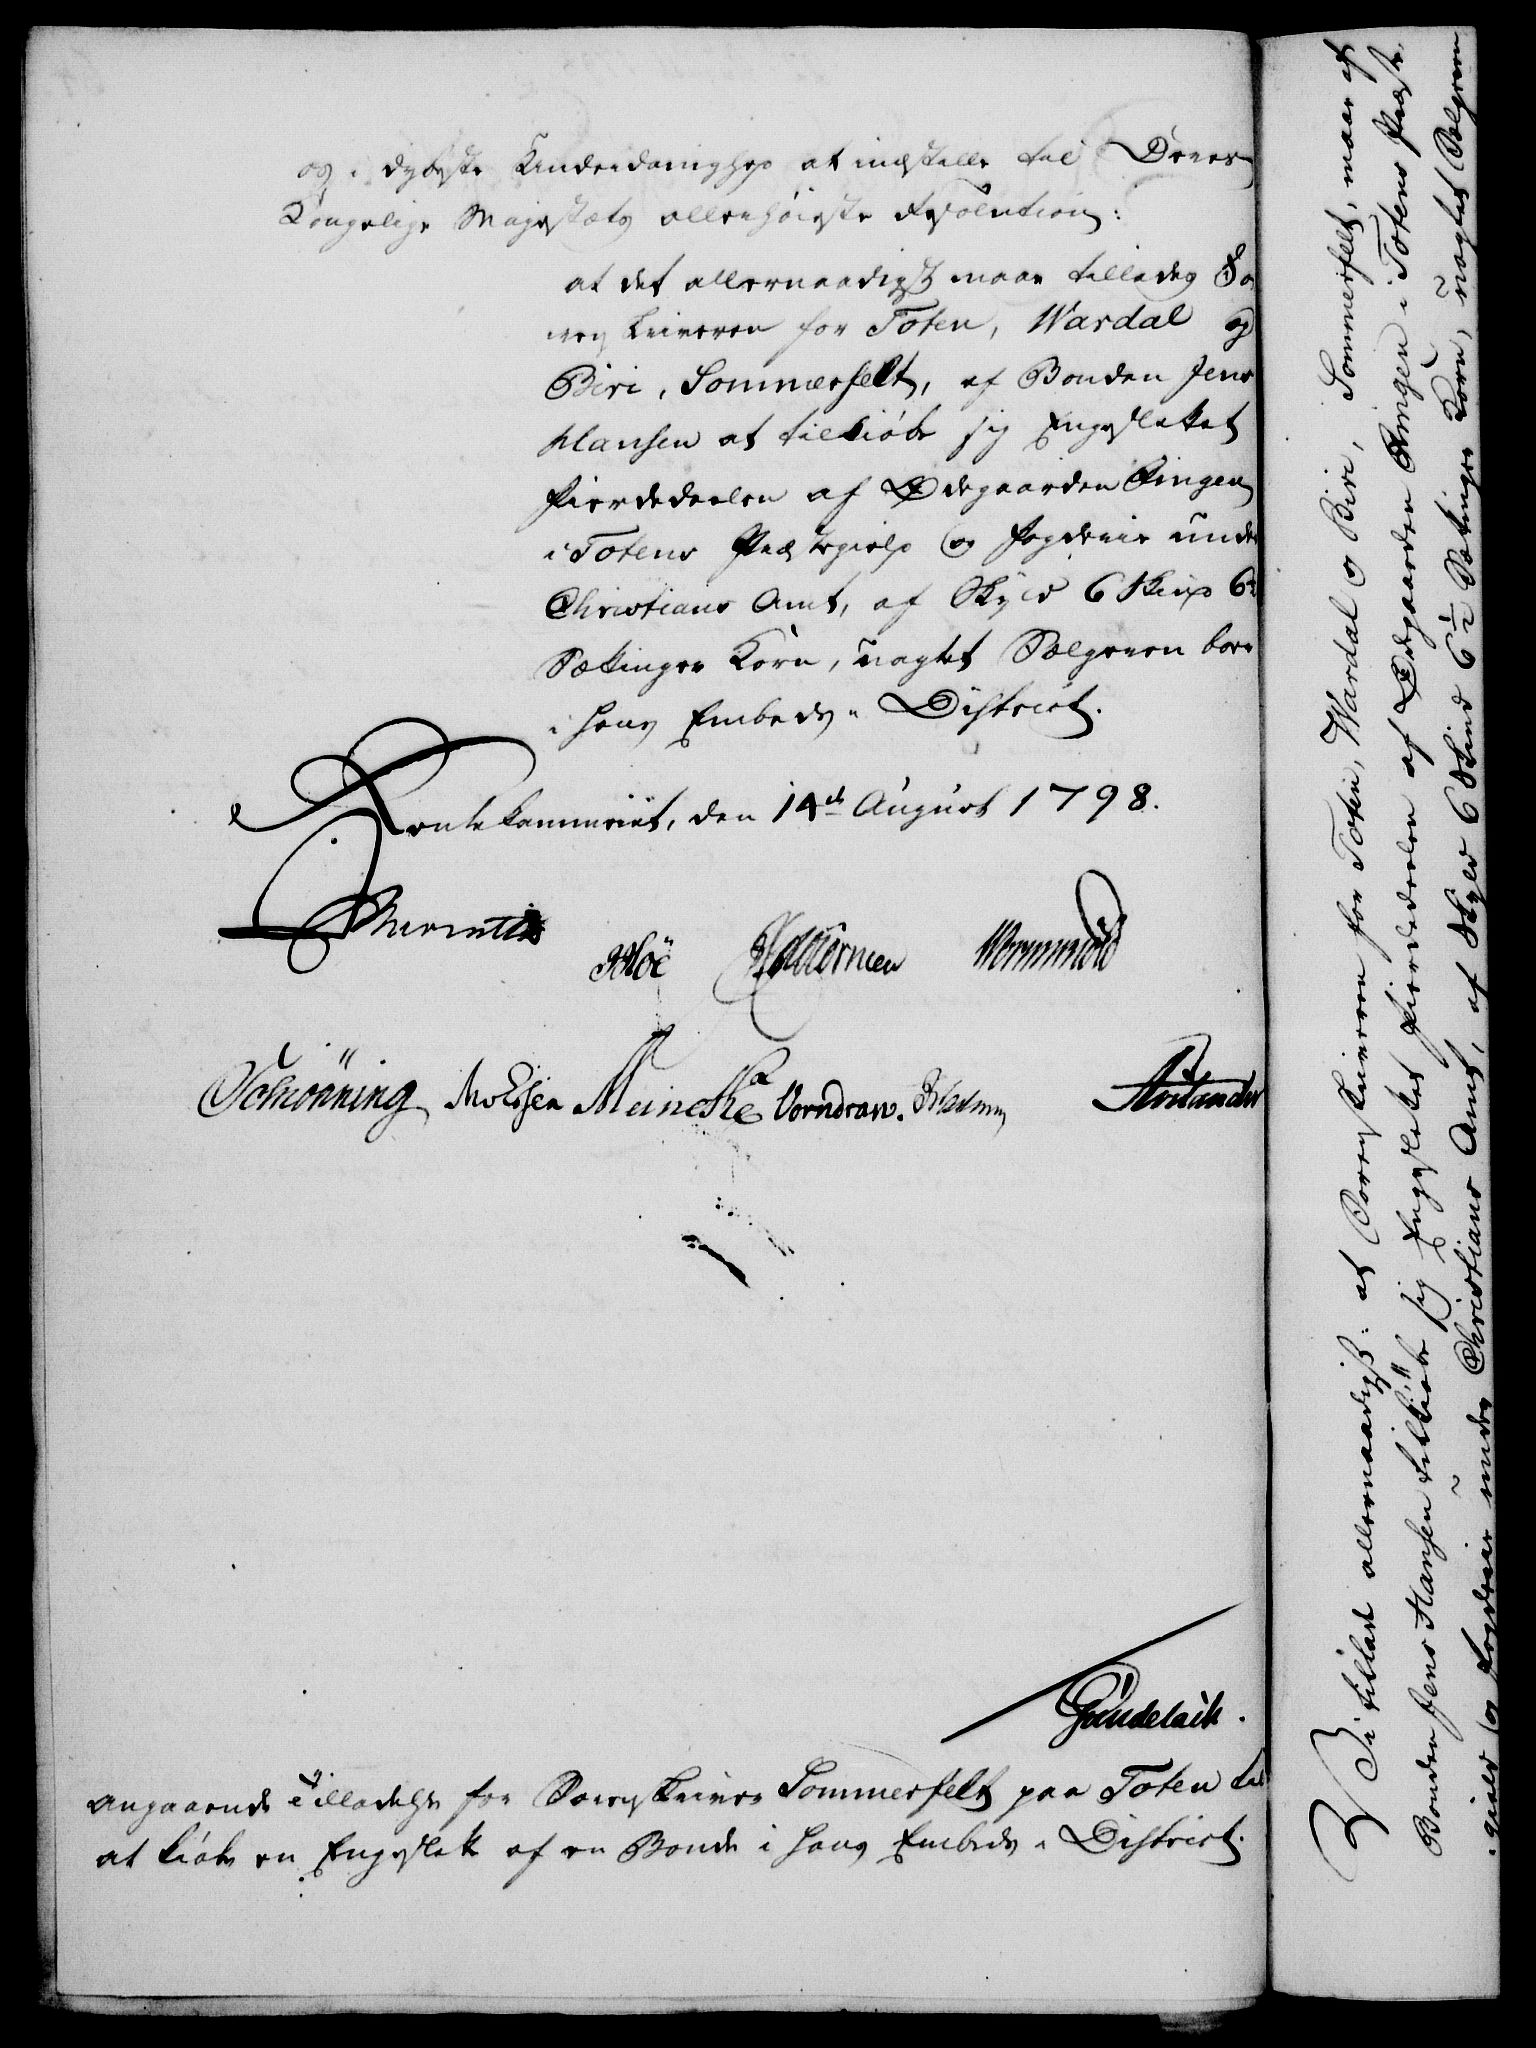 og i dybeste Underdanighed at indstille til Deres
Kongelige Majestæts allerhøieste Resolution:
at det allernaadigst maae tillades So
renskriveren for Toten, Wardal og
Biri, Sommerfelt, af Bonden Jens
Hansen at tilkiøbe sig Engeslettet
Fierdedeelen af Ødegaarden Ringen
i Totens Præstegield og Fogderie under
Christians Amt, af Skyld 6 Skind 6½
Sættinger Korn, uagtet Sælgeren boer
i hans Embeds-District.
Rentekammeret, den 14de August 1798.
Schiönning Meincke Vorndran.
Gundelach.
angaaende Tilladelse for Sorenskriver Sommerfelt paa Toten til
at kiøbe en Engeslette af en Bonde i hans Embeds-District.
Vi tillade allernaadigst: at Sorenskriveren for Toten, Wardal og Biri, Sommerfelt, maae af
Bonden Jens Hansen tilkiøbe sig Engeslettet Fierdedeelen af Ødegaarden Ringen i Totens Præste-
gield og Fogderie under Christians Amt, af Skyld 6 Skind 6½ Sættinger Korn, uagtet Sælgeren